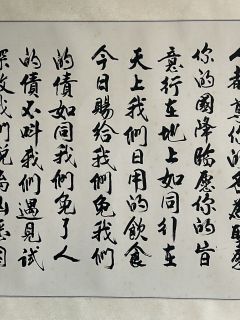 人都尊你的名為聖願
你的國降臨愿你的旨
意行在地上如同行在
天上我們日用的飲食
今日賜給我們免我們
的債如同我們免了人
的債不叫我們遇見試
探救我們脫離凶惡因